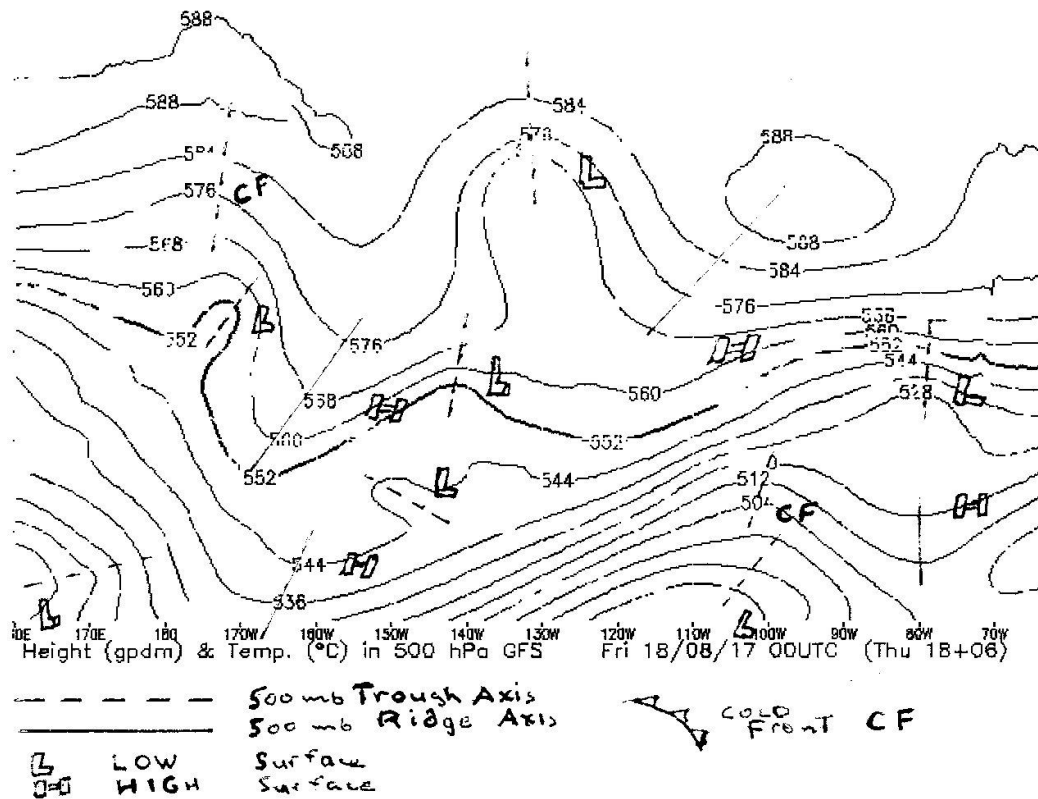 588
588
588
584
584
588
578
L
576
CF
568
588
584
560
576
552
L
576
H
568
560
552
544
528
L
568
H
L
560
560
552
552
L
544
512
504
CF
H
544
H
536
L
L
170E 180 170W 160W 150W 140W 130W 120W 110W 100W 90W 80W 70W
Height (gpdm) & Temp. (°C) in 500 hPa GFS Fri 18/08/17 00UTC (Thu 18+06)
500 mb Trough Axis
500 mb Ridge Axis
COLD Front CF
L LOW Surface
H HIGH Surface